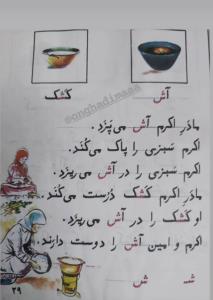 آش
کَشک
songhadimaaa
مادَرِ اکرم آش می‌پَزَد.
اکرم سَبزی را پاک می‌کُنَد.
اکرم سَبزی را در آش می‌ریزد.
مادَرِ اکرم کَشک دُرُست می‌کُند.
او کَشک را در آش می‌ریزد.
اکرم و امین آش را دوست دارند.
شـ ش
۲۹